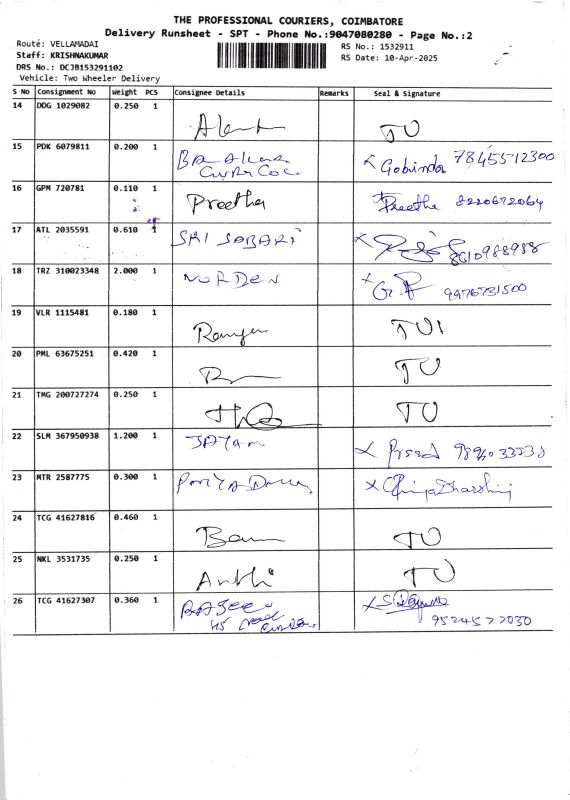 THE PROFESSIONAL COURIERS, COIMBATORE
Delivery Runsheet - SPT - Phone No.:9047080280 - Page No.:2
Route: VELLAMADAI
RS No.: 1532911
Staff: KRISHNAKUMAR
RS Date: 10-Apr-2025
DRS No.: DCJB1532911O2
Vehicle: Two Wheeler Delivery
S No Consignment No Weight PCS Consignee Details Remarks Seal & Signature
14 DDG 1029082 0.250 1 TO
15 PDK 6079811 0.200 1 Gobinda 7845512300
16 GPM 720781 0.110 1 Preetha Preetha 8220672064
17 ATL 2035591 0.610 1 SRI SABARI 8610988988
18 TRZ 310023348 2.000 1 NORDEN 9976731500
19 VLR 1115481 0.180 1
20 PML 63675251 0.420 1 TO
21 TMG 200727274 0.250 1 TO
22 SLM 367950938 1.200 1 JAYAM
23 MTR 2587775 0.300 1
24 TCG 41627816 0.460 1 TO
25 NKL 3531735 0.250 1 TO
26 TCG 41627307 0.360 1
9524577030